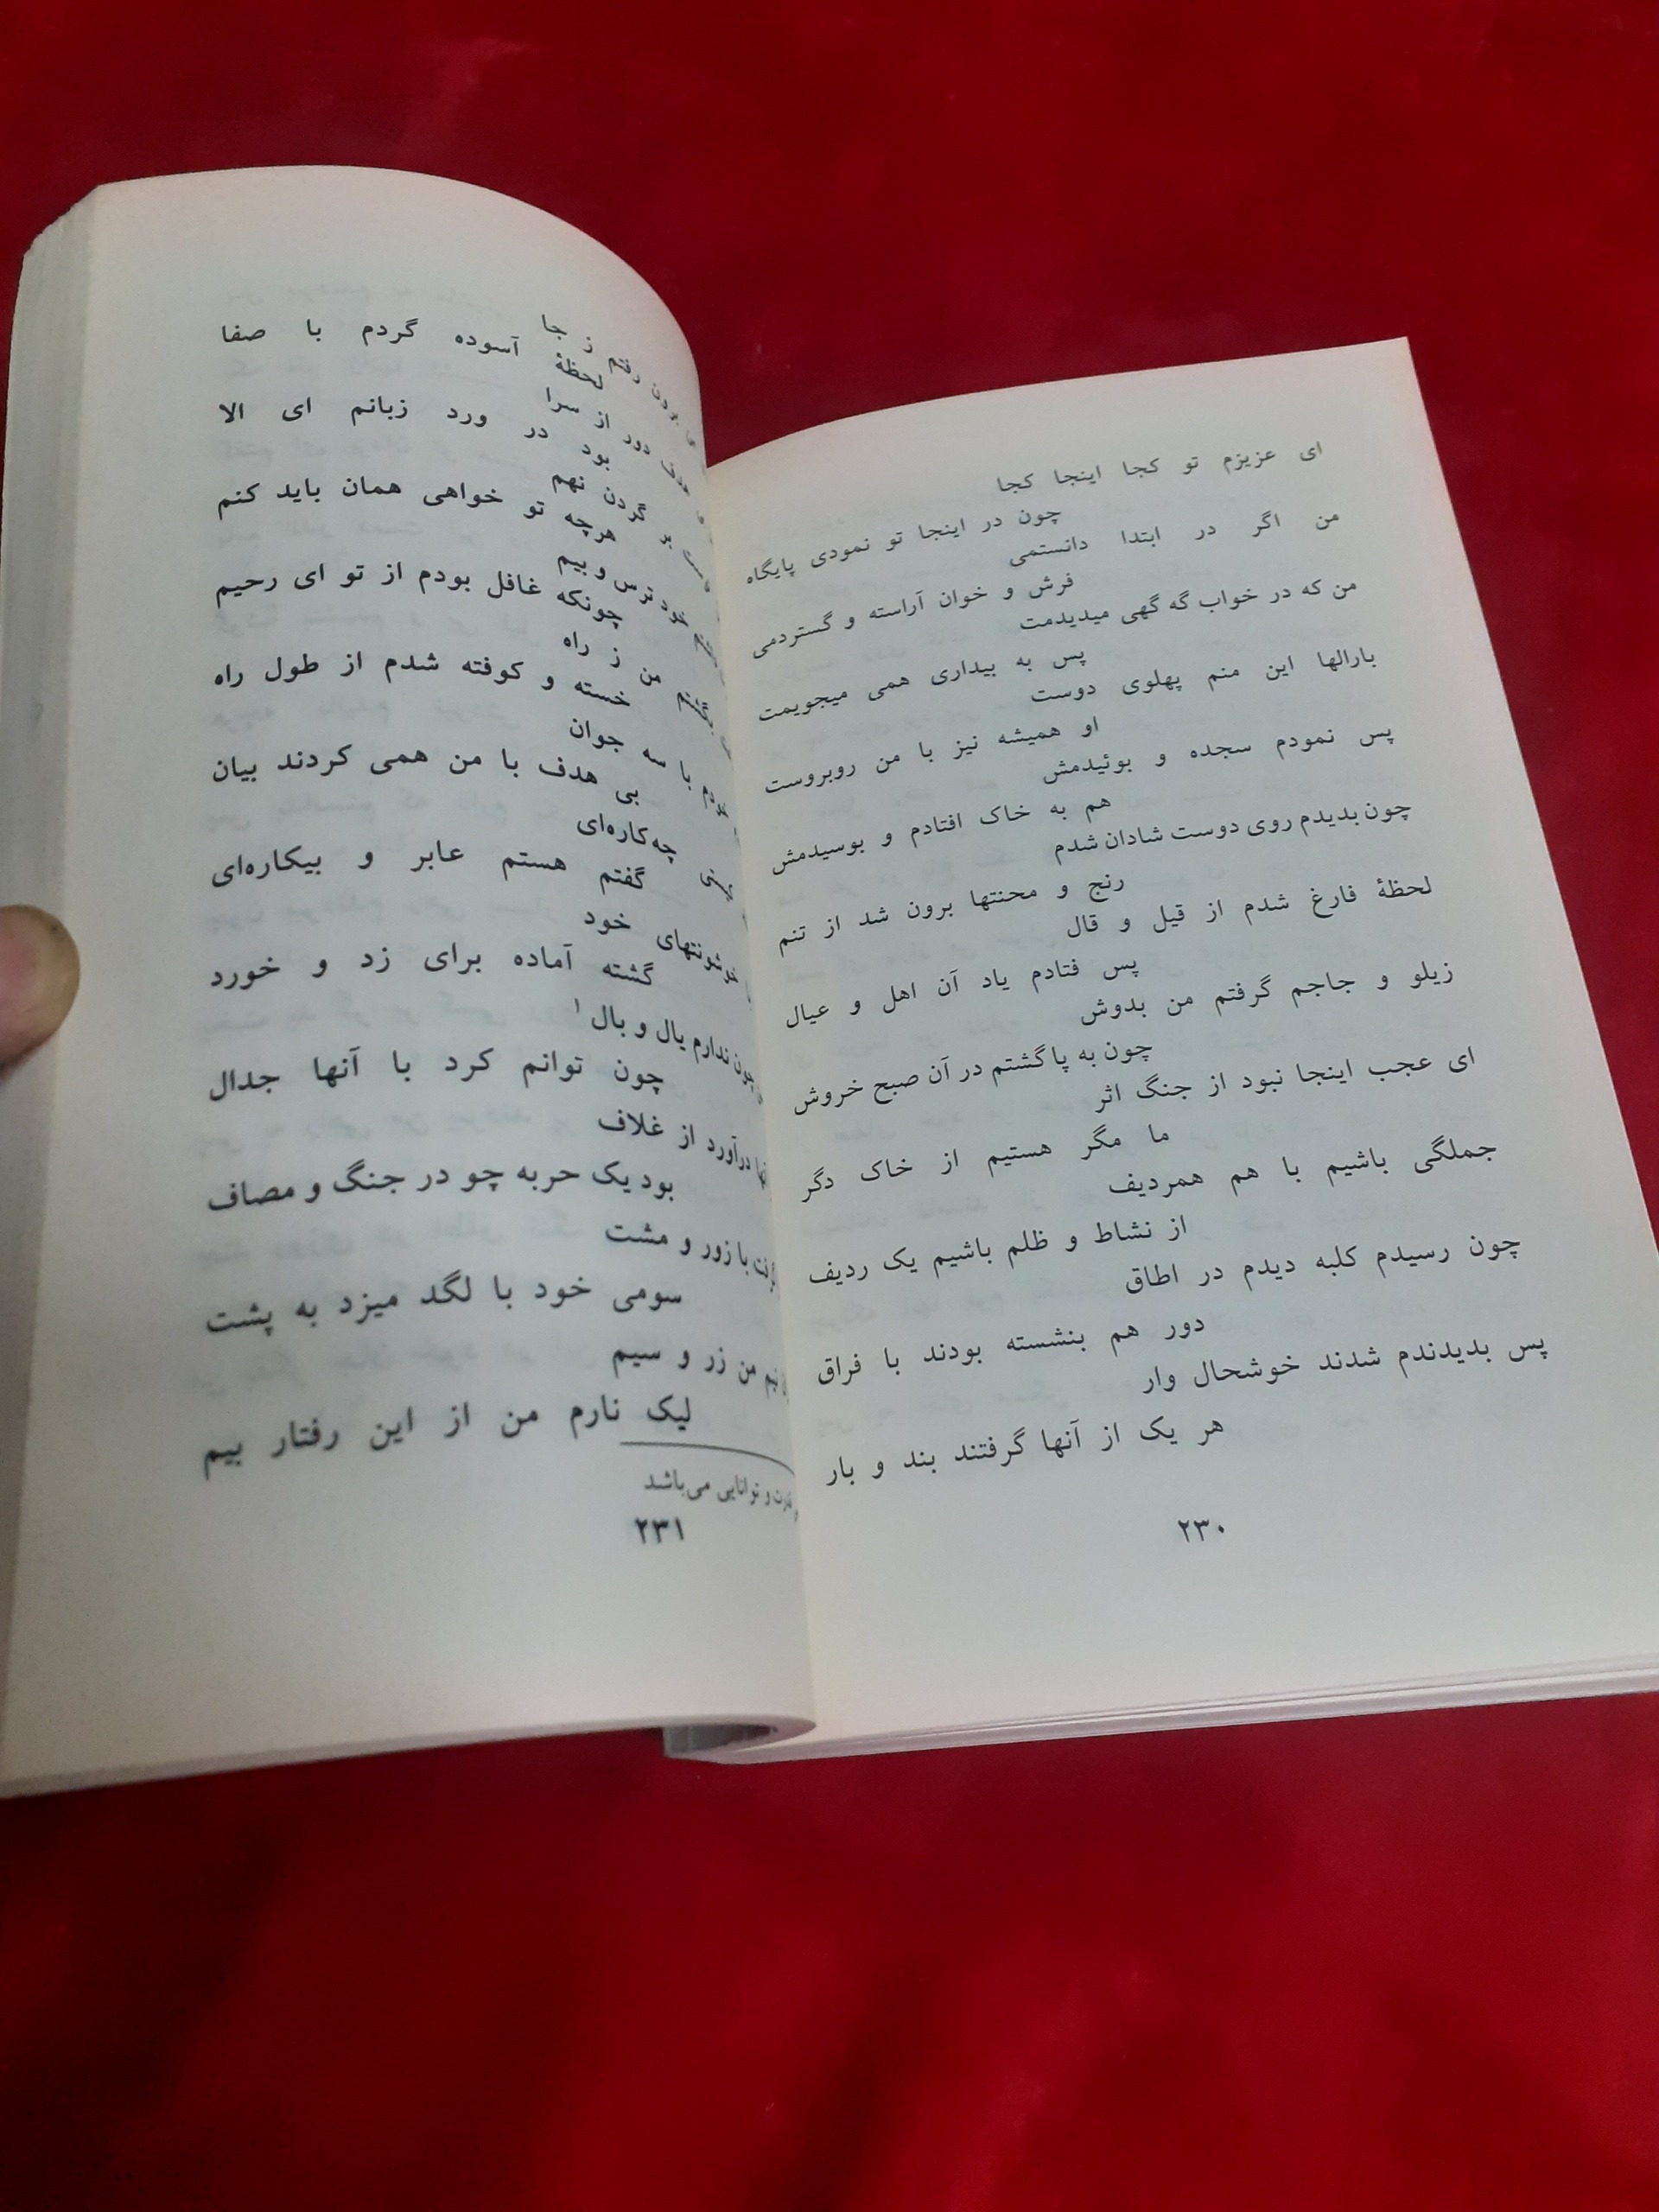 ای عزیزم تو کجا اینجا کجا
چون در اینجا تو نمودی پایگاه
من اگر در ابتدا دانستمی
فرش و خوان آراسته و گستردمی
من که در خواب گه گهی میدیدمت
پس به بیداری همی میجویمت
بارالها این منم پهلوی دوست
او همیشه نیز با من روبروست
پس نمودم سجده و بوئیدمش
هم به خاک افتادم و بوسیدمش
چون بدیدم روی دوست شادان شدم
رنج و محنتها برون شد از تنم
لحظۀ فارغ شدم از قیل و قال
پس فتادم یاد آن اهل و عیال
زیلو و جاجم گرفتم من بدوش
چون به پا گشتم در آن صبح خروش
ای عجب اینجا نبود از جنگ اثر
ما مگر هستیم از خاک دگر
جملگی باشیم با هم همردیف
از نشاط و ظلم باشیم یک ردیف
چون رسیدم کلبه دیدم در اطاق
دور هم بنشسته بودند با فراق
پس بدیدندم شدند خوشحال وار
هر یک از آنها گرفتند بند و بار
۲۳۰
برون رفتم ز جا
لحظۀ آسوده گردم با صفا
هدف دور از سرا
بود در ورد زبانم ای الا
بر گردن نهم
هرچه تو خواهی همان باید کنم
خود ترس و بیم
چونکه غافل بودم از تو ای رحیم
بگشتم من ز راه
خسته و کوفته شدم از طول راه
با سه جوان
بی هدف با من همی کردند بیان
چه‌کاره‌ای
گفتم هستم عابر و بیکاره‌ای
خوشونتهای خود
گشته آماده برای زد و خورد
چون ندارم یال و بال ۱
چون توانم کرد با آنها جدال
درآورد از غلاف
بود یک حربه چو در جنگ و مصاف
با زور و مشت
سومی خود با لگد میزد به پشت
من زر و سیم
لیک نارم من از این رفتار بیم
و توانایی می‌باشد
۲۳۱